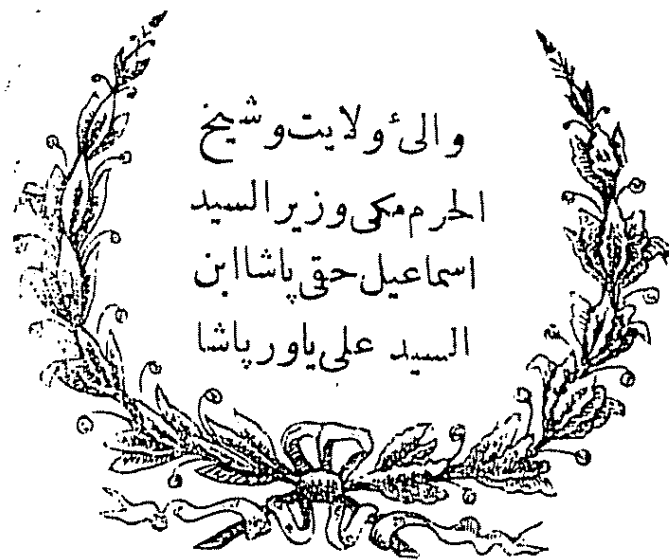 والیٔ ولایت و شیخ
الحرم مکی وزیر السید
اسماعیل حقی پاشا ابن
السید علی یاور پاشا